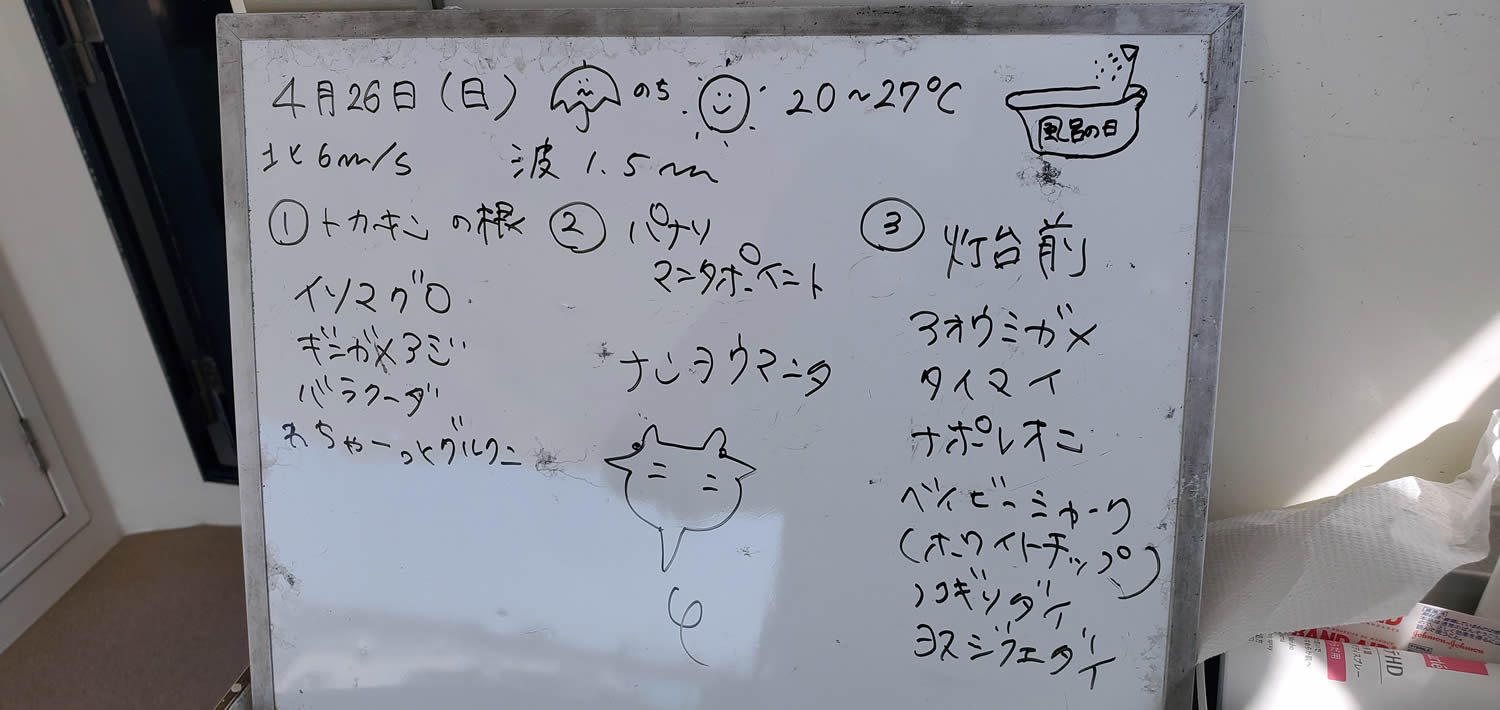 4月26日(日) のち 20~27℃
風呂の日
北6m/s 波1.5m
① トカキンの根
イソマグロ
ギンガメアジ
バラクーダ
わちゃーっとグルクン
② パナリ
マンタポイント
ナンヨウマンタ
③ 灯台前
アオウミガメ
タイマイ
ナポレオン
ベイビーシャーク
(ホワイトチップ)
ノコギリダイ
ヨスジフエダイ
BAND-AID
Johnson&Johnson
HD